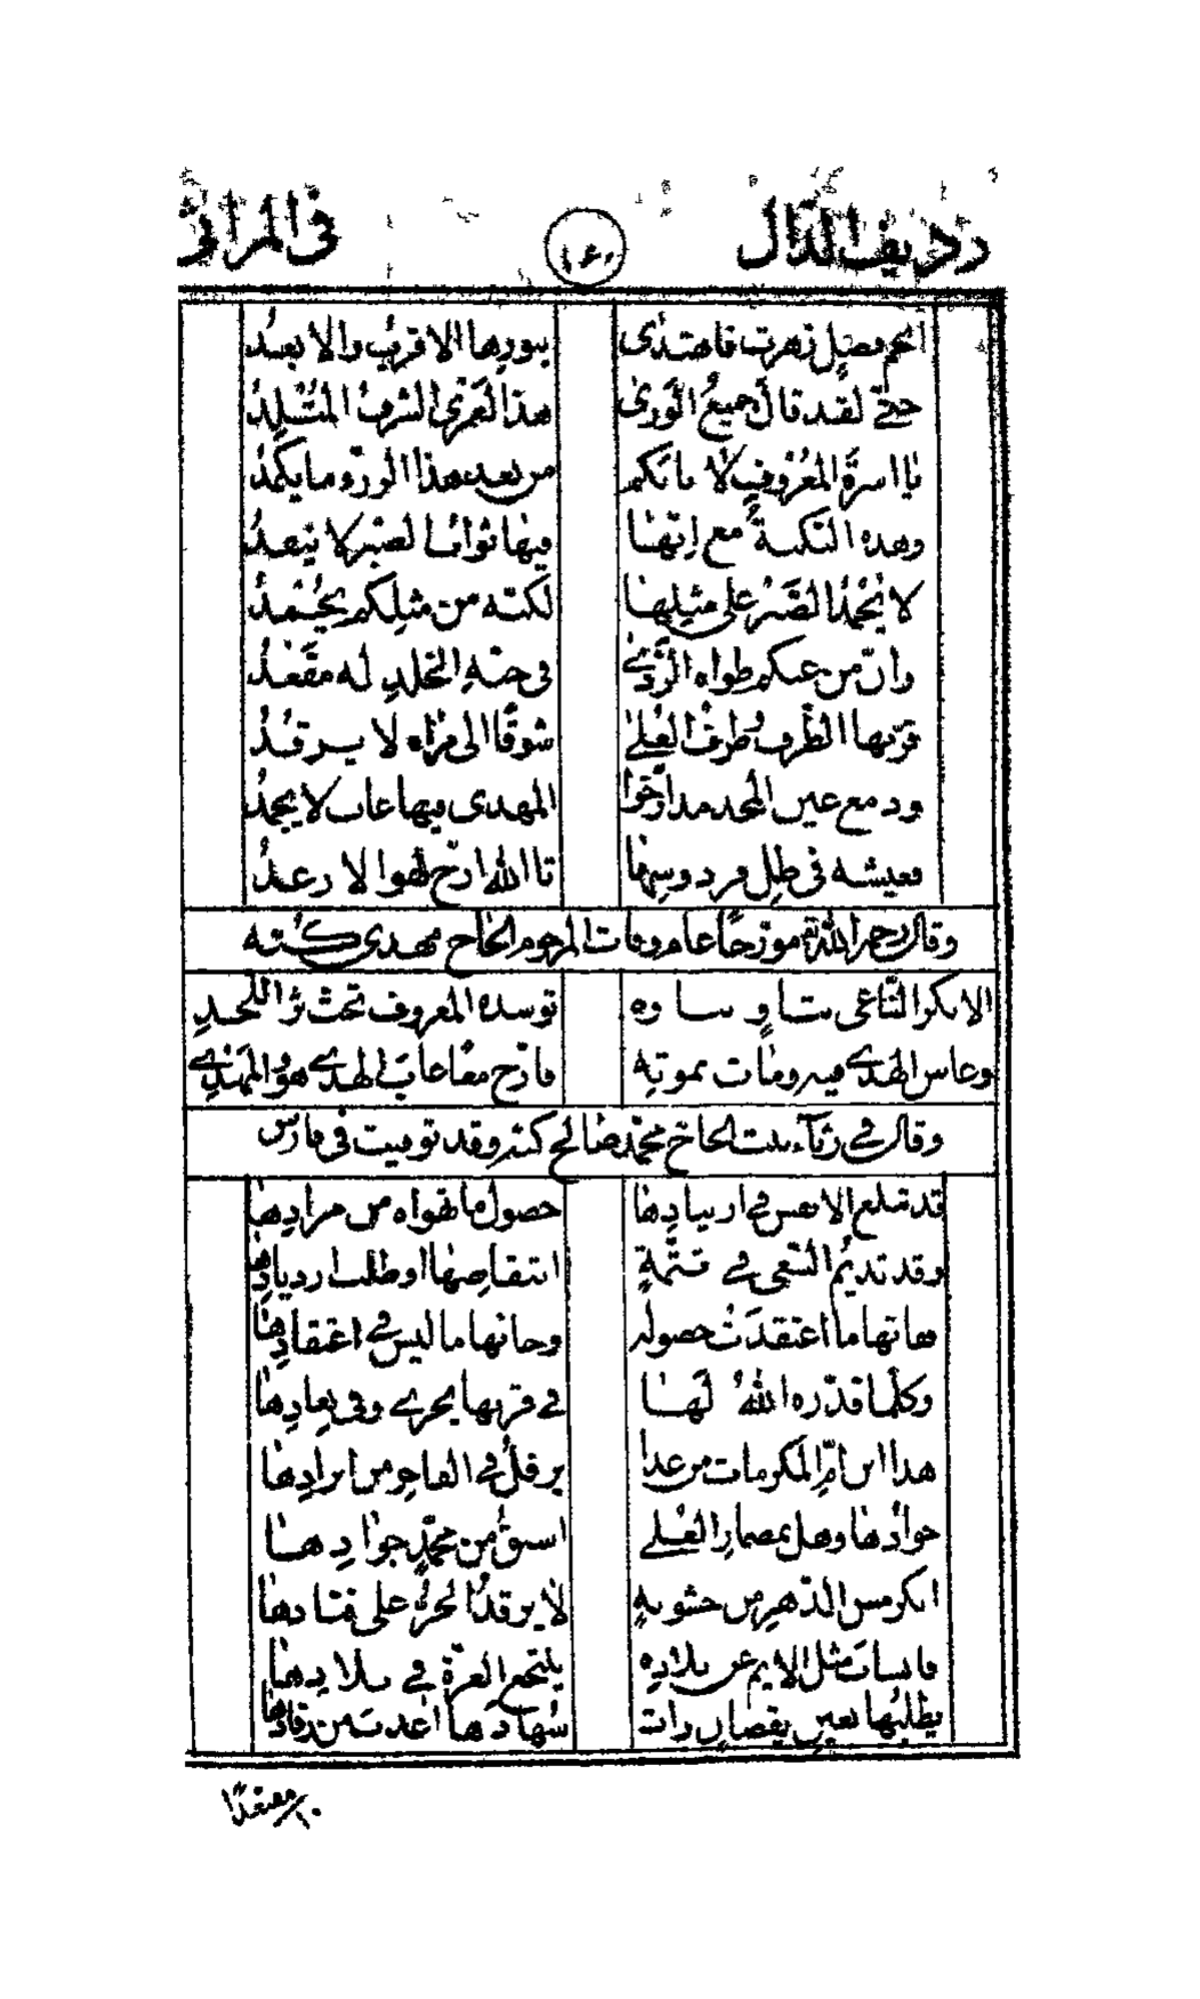 رديف الدال ١٦٠ في المراثي
انجم فضل زهرت فاهتدى بنورها الاقرب والابعد
حتى لقد قال جميع الورى هذا لعمري الشرف المتلد
يا اسرة المعروف لا نابكم من بعد هذا الرزء ما يكمد
وهذه النكبة مع انها فيها ثواب الصبر لا تبعد
لا يحمد الصبر على مثلها لكنه من مثلكم يحمد
وان من عنكم طواه الردى في جنة الخلد له مقعد
قربها الطرف وطرف العلى شوقا الى مراه لا يرقد
ودمع عين المجد مذ ارخوا المهدي فيها غاب لا يجمد
فعيشه في ظل فردوسها تا الله ارخ لهو الارغد
وقال رحمه الله مورخا عام وفات المرحوم الحاج مهدي كبة
الا بكر الناعي توسده المعروف تحت ثرا اللحد
وعاش الهدى فيه ومات بموته فارخ معا غاب الهدى هو والمهدي
وقال في رثاء بنت الحاج محمد صالح كبة وقد توفيت في فارس
قد تبلغ الانفس في ارتيادها حصول ما تهواه من مرادها
وقد تديم السعي في انتقاصها او طلب ازديادها
ما اعتقدت حصوله وجائها ما ليس في اعتقادها
وكلما قدره الله لها في قربها يجري وفي بعادها
هذا ابن ام المكرمات من غدا يرفل في الفاخر من ابرادها
جوادها وهل بمضمار العلى اسبق من محمد جوادها
لا يرقد الحر على قتادها
مثل الايم عن بلاده ينتجع العزة في بلادها
يطلبها بعين يقضان رات سهادها اعذب من رقادها